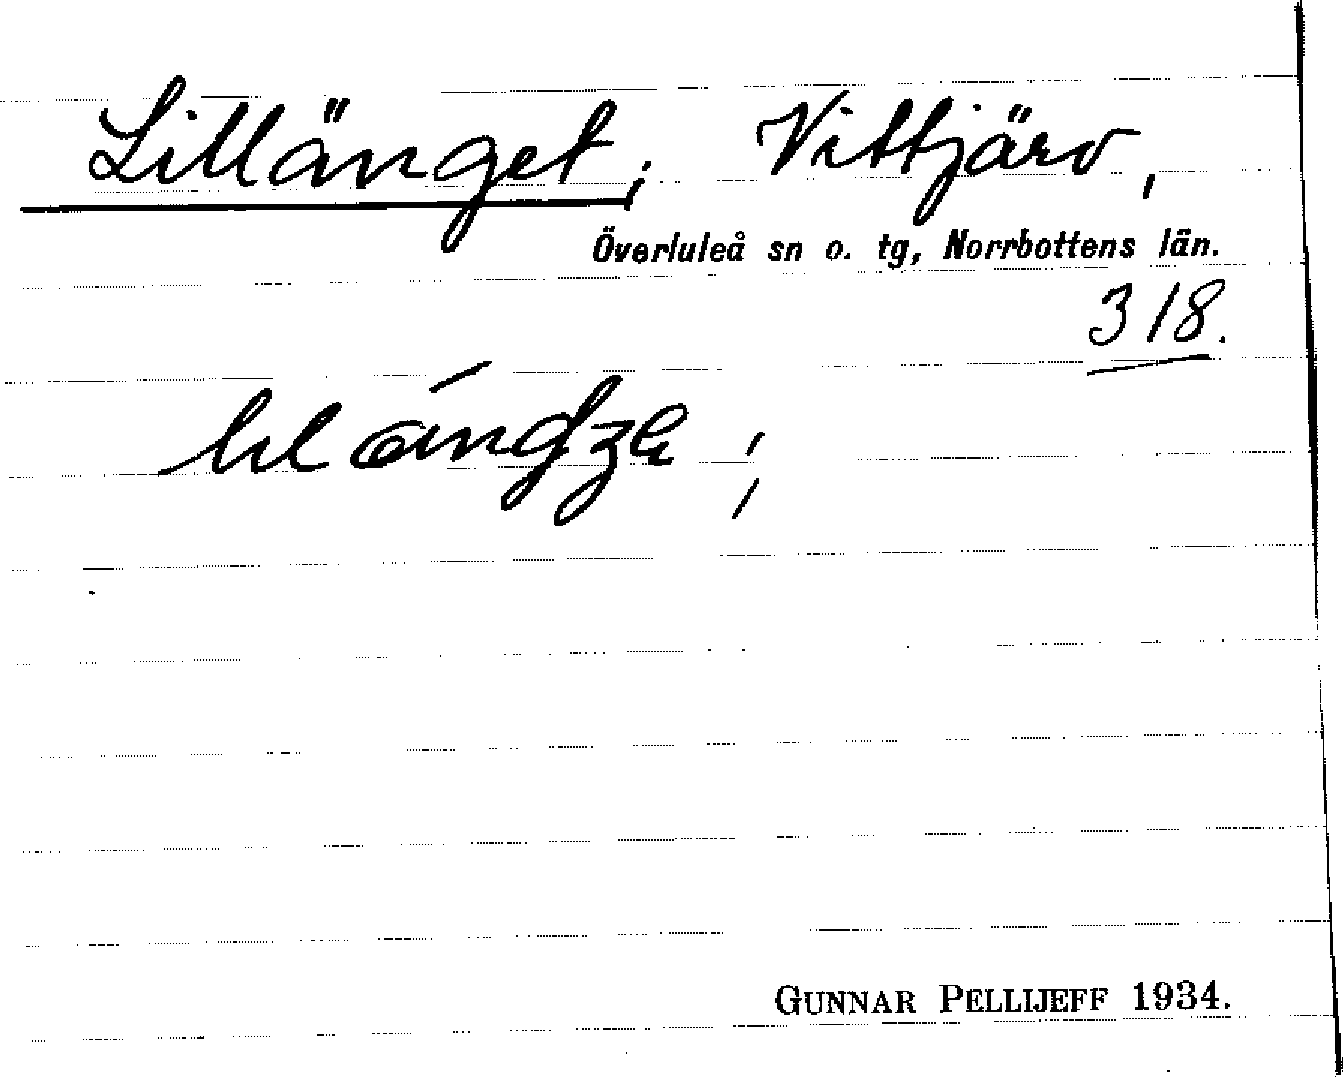 Lillänget; Vittjärv,
Överluleå sn o. tg, Norrbottens län.
318.
GUNNAR PELLIJEFF 1934.